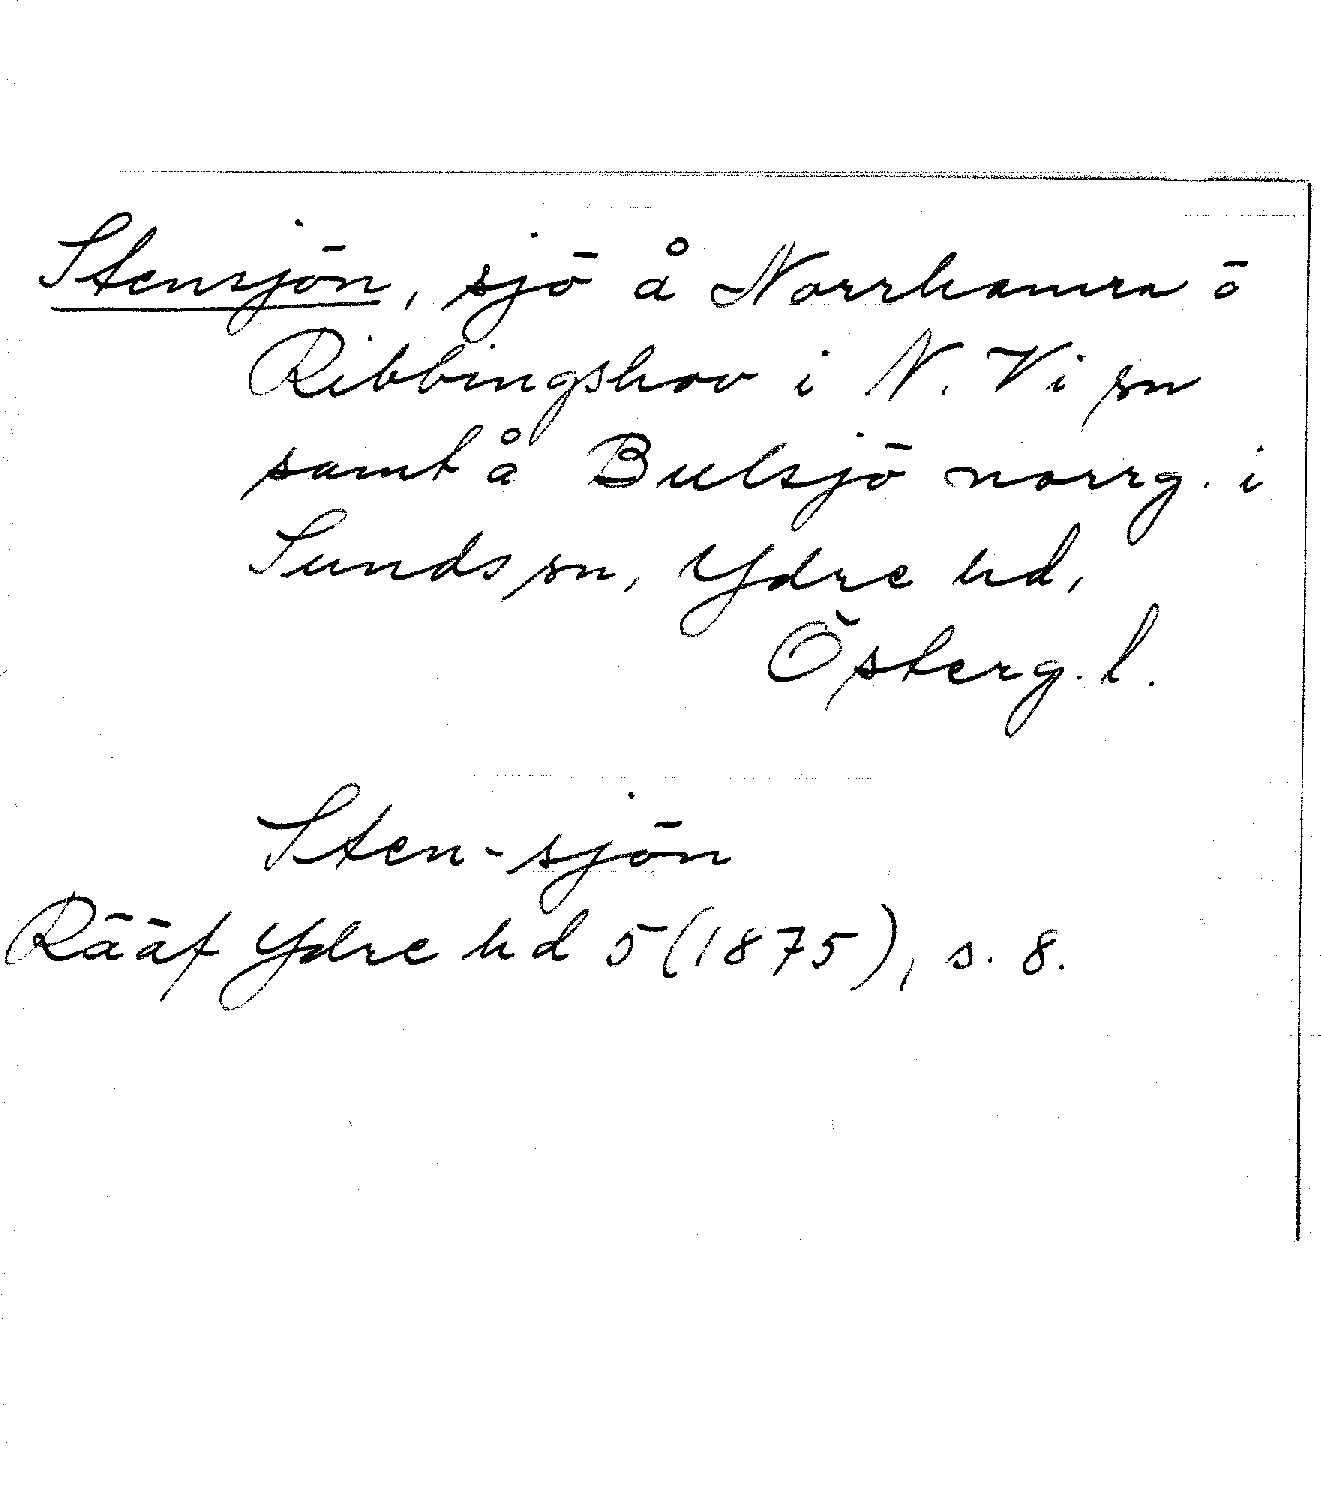 Stensjön, sjö å Norrhamra ö
Ribbingshov i N. Vi sn
samt å Bulsjö norrg. i
Sunds sn, Ydre hd,
Österg. l.
Sten-sjön
Rääf Ydre hd 5 (1875), s. 8.